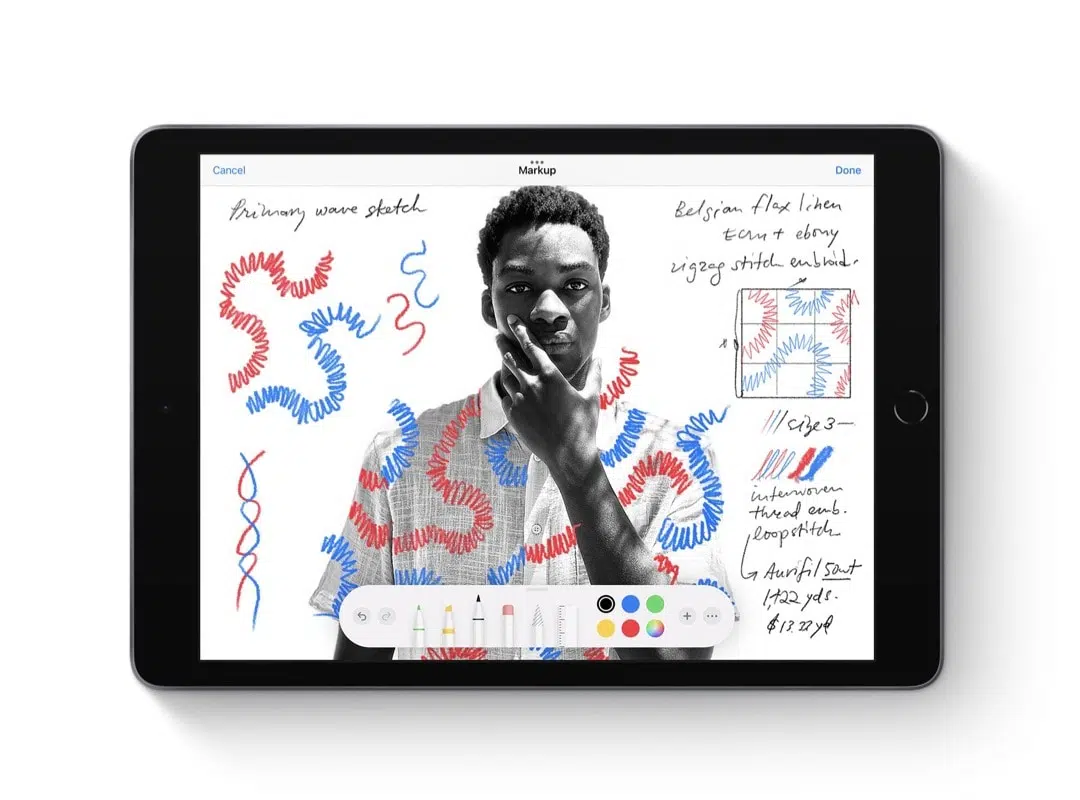 Cancel
Markup
Done
Primary wave sketch
Belgian flax linen
Ecru + ebony
zigzag stitch embroid.
size 3
interwoven
thread emb.
loopstitch
Aurifil 50wt
1422 yds.